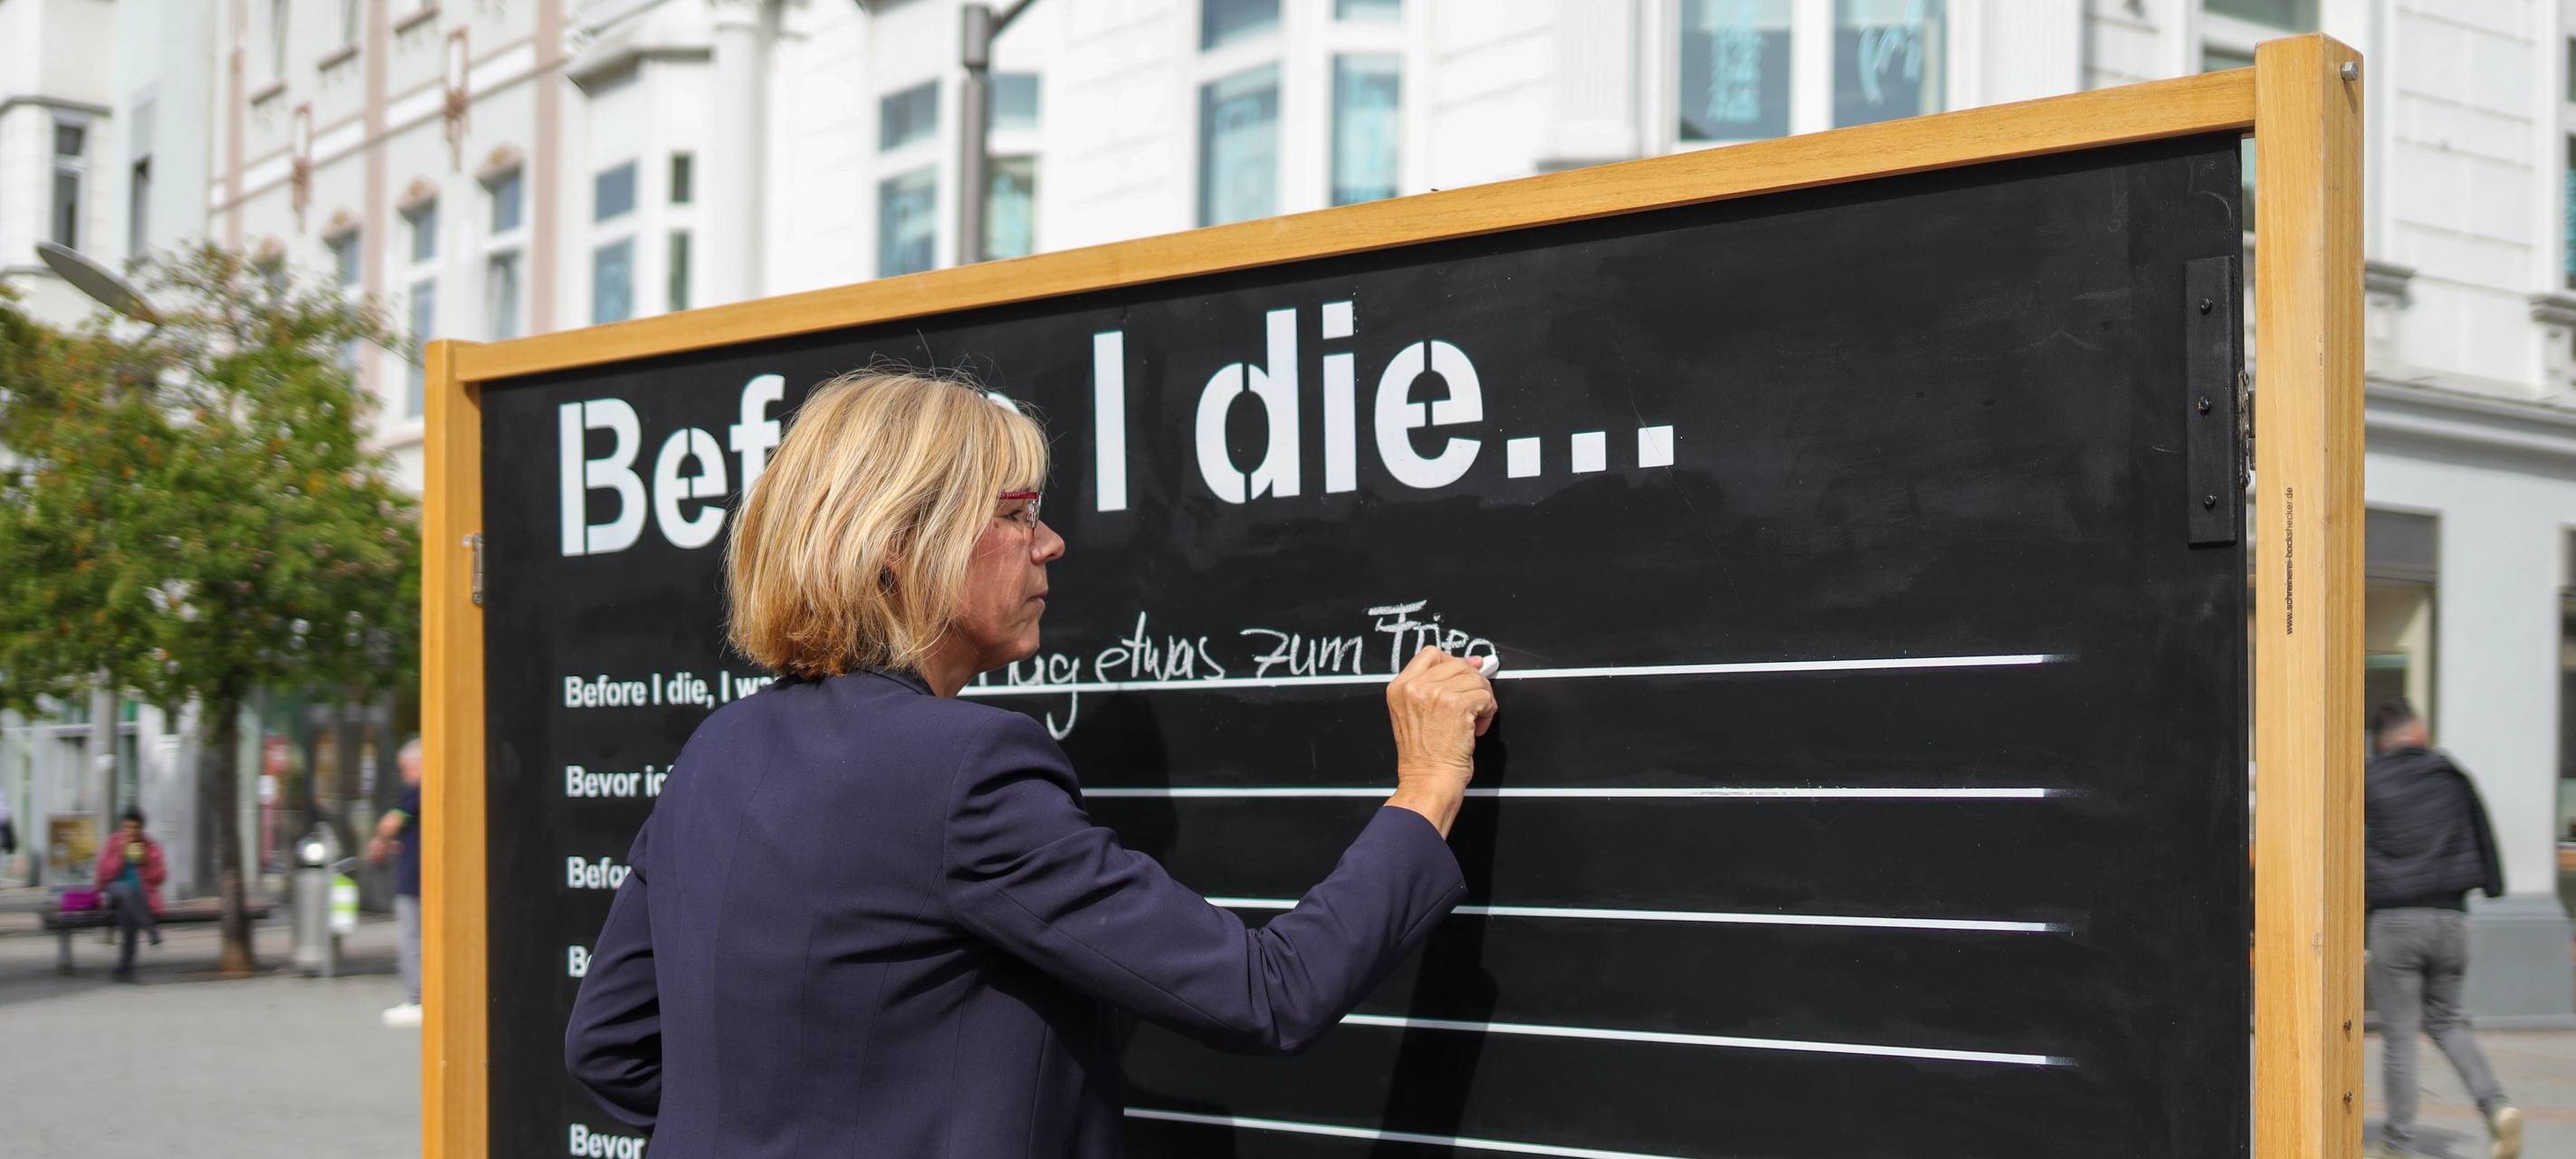 Bef I die...
Before I die, I wa
etwas zum Frie
Bevor ic
Befor
Be
Bevor
www.schreinerei-bockshecker.de